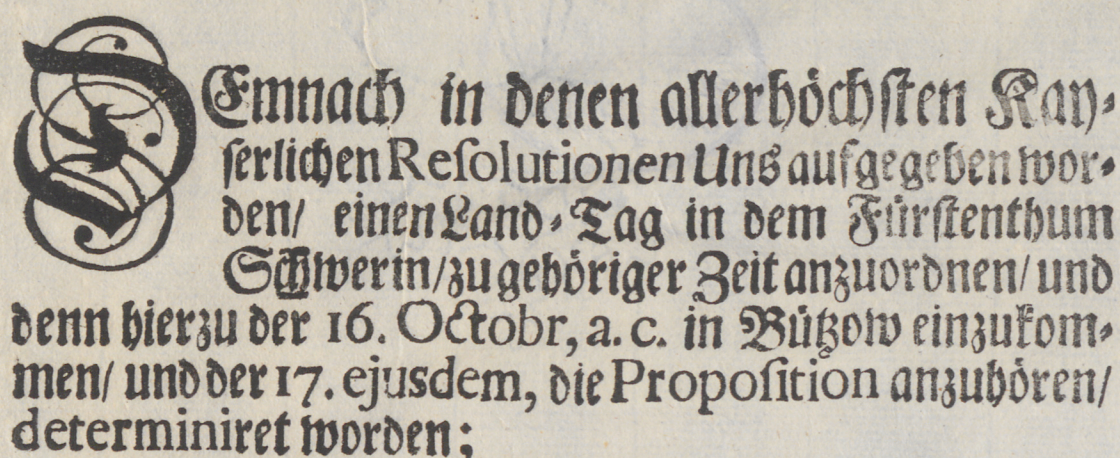 DEmnach in denen allerhöchsten Kay-
serlichen Resolutionen Uns aufgegeben wor-
den/ einen Land-Tag in dem Fürstenthum
Schwerin/ zu gehöriger Zeit anzuordnen/ und
denn hierzu der 16. Octobr, a. c. in Bützow einzukom-
men/ und der 17. ejusdem, die Proposition anzuhören/
determiniret worden;